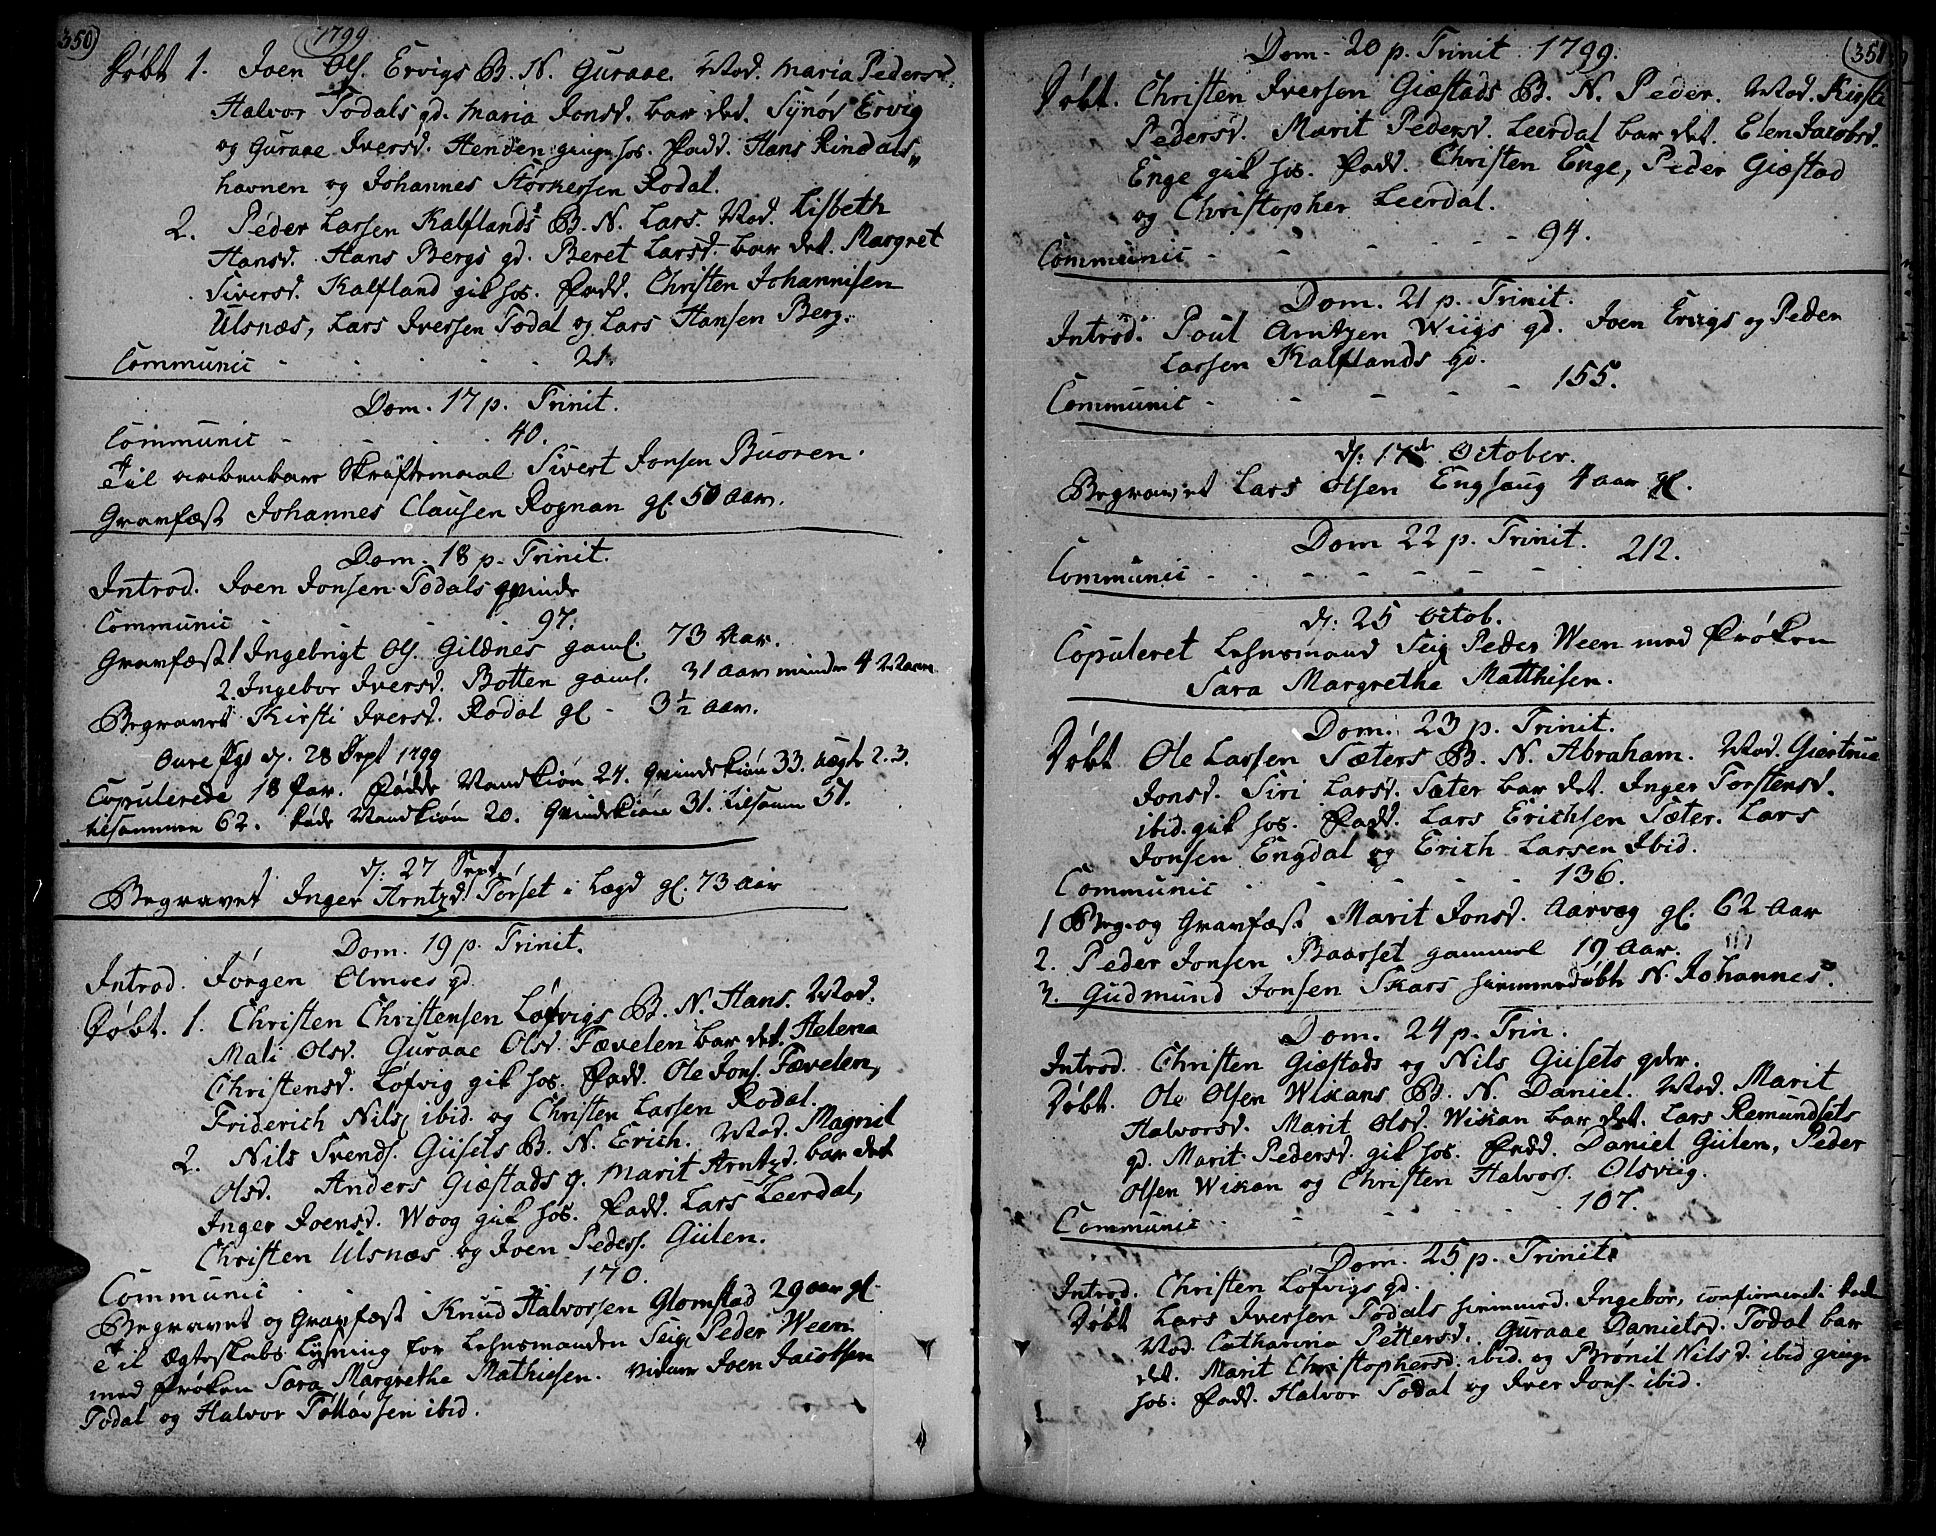 350
1799
Døbt 1. Joen Ols. Ervigs B. N. Guraae. Mod. Maria Pedersd.
Halvor Todals qd. Maria Jonsd. bar det. Synøv Ervig
og Guraae Iversd. Henden ginge hos. Fadd. Hans Rindals„
havnen og Johannes Størkersen Rodal.
2. Peder Larsen Kalflands B. N. Lars. Mod. Lisbeth
Hansd. Hans Bergs qd. Beret Larsd. bar det. Margret
Siversd. Kalfland gik hos. Fadd. Christen Johannisen
Ulsnæs, Lars Iversen Todal og Lars Hansen Berg.
Communic - - - - 21.
Dom. 17 p. Trinit.
Communic - - - 40.
Til aabenbare Skriftemaal Sivert Jonsen Buoren.
Gravfæst Johannes Clausen Rognan gl. 50 Aar.
Dom. 18 p. Trinit.
Introd. Joen Jonsen Todals qvinde
Communic - - - 97.
Gravfæst 1 Ingebrigt Ols. Gildnes gaml. 73 Aar.
2. Ingebor Iversd. Botten gaml. 31 Aar minder 4 Maan
Begravet Kirsti Iversd. Rodal gl - 3½ Aar.
Oure Pgd d. 28 Sept 1799
Copulerede 18 Par. Fødde Mandkiøn 24. Qvindekiøn 33. uægte 2.3.
tilsammen 62. Døde Mandkiøn 20. Qvindekiøn 31. tilsamm 51.
d. 27 Sept
Begravet Inger Arntzd. Torset i Lægd gl. 73 Aar
Dom. 19 p. Trinit.
Introd. Jørgen Olmoes qd.
Døbt. 1. Christen Christensen Løfvigs B. N. Hans. Mod.
Mali Olsd. Guraae Olsd. Fævelen bar det. Helena
Christensd. Løfvig gik hos. Fadd. Ole Jons. Fævelen,
Friderich Nils. ibid. og Christen Larsen Rodal.
2. Nils Svends. Gusets B. N. Erich. Mod. Magnil
Olsd. Anders Giæstads q. Marit Arntzd. bar det
Inger Joensd. Woog gik hos. Fadd. Lars Leerdal,
Christen Ulsnæs og Joen Peders. Gulen.
Communic - - - 170.
Begravet og Gravfæst Knud Halvorsen Glomstad 29 aar gl.
Til Ægteskabs Lysning for Lehnsmanden Seig Peder Ween
med Frøken Sara Margrethe Mathiesen. Vidner Joen Jacobsen
Todal og Halvor Tollovsen ibid.
351
Dom. 20 p. Trinit. 1799.
Døbt. Christen Iversen Giæstads B. N. Peder. Mod. Kirsti
Pedersd. Marit Pedersd. Leerdal bar det. Elen Jacobsd.
Enge gik hos. Fadd. Christen Enge, Peder Giæstad
og Christopher Leerdal.
Communic - - - - - 94.
Dom. 21 p. Trinit.
Introd. Poul Arntzen Wiigs qd. Joen Ervigs og Peder
Larsen Kalflands qd.
Communic - - - - - 155.
d. 17de October.
Begravet Lars Olsen Engsaug 4 aar gl.
Dom 22 p. Trinit.
Communic - - - - - - 212.
d. 25 Octob.
Copuleret Lehnsmand Seig Peder Ween med Frøken
Sara Margrethe Matthisen.
Dom. 23 p. Trinit.
Døbt Ole Larsen Sæters B. N. Abraham. Mod. Giertrue
Jonsd. Siri Larsd. Sæter bar det. Inger Torstensd.
ibid. gik hos. Fadd. Lars Erichsen Sæter. Lars
Jonsen Engdal og Erich Larsen Ibid.
Communic - - - - - 136.
1 Beg. og Gravfæst Marit Jonsd. Aarvæg gl. 62 Aar
2. Peder Jonsen Baarset gammel 19 Aar.
3. Gudmund Jonsen Skars hiemmedøbte N. Johannes.
Dom. 24 p. Trin.
Introd. Christen Giæstads og Nils Gusets qdr.
Døbt. Ole Olsen Wikans B. N. Daniel. Mod. Marit
Halvorsd. Marit Olsd. Wikan bar det. Lars Remundsets
qd. Marit Pedersd. gik hos. Fadd. Daniel Gulen, Peder
Olsen Wikan og Christen Halvors. Olsviig.
Communic - - - - - 107.
Dom. 25 p. Trinit.
Introd. Christen Løfvigs qd.
Døbt Lars Iversen Todals hiemmed. Ingebor, confirmeret Daab
Mod. Catharina Pettersd. Guraae Danielsd. Todal bar
det. Marit Christophersd. ibid. og Brønil Nilsd. ibid ginge
hos. Fadd. Halvor Todal og Iver Jons. ibid.